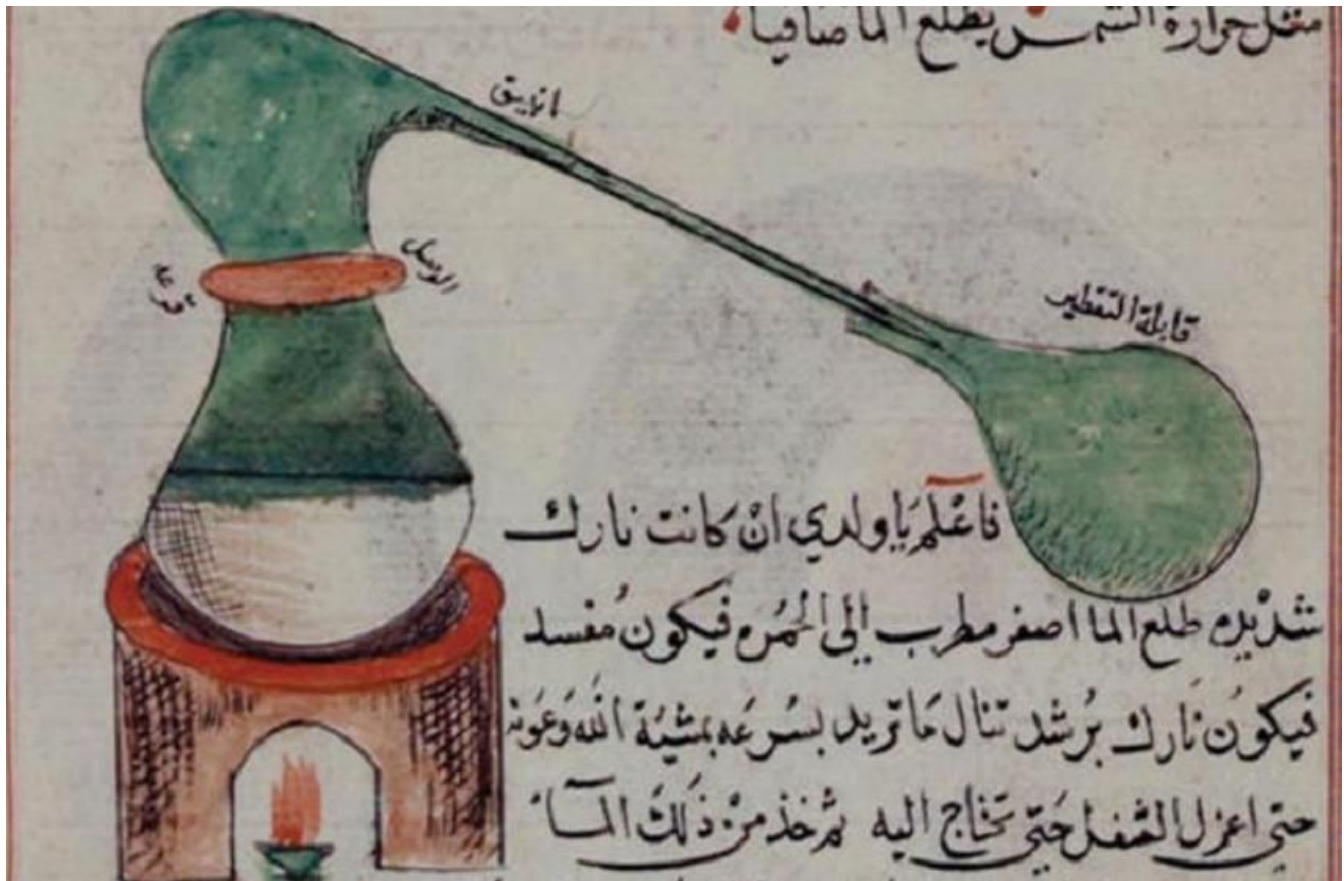 مثل حرارة الشمس يطلع الما صافيا
انبيق
الوصل
قرعه
قابلة التقطير
فاعْلَم يَا ولدي انْ كانت نارك
شديده طلع الما اصفر مطرب الي الحمره فيكون مُفسد
فيكون نارك بُرشد تنال ما تريد بسُرعه بمشيّة الله وَعونه
حتى اعزل الثفل حَتي تحتاج اليه ثم خذ منْ ذلكَ المآء